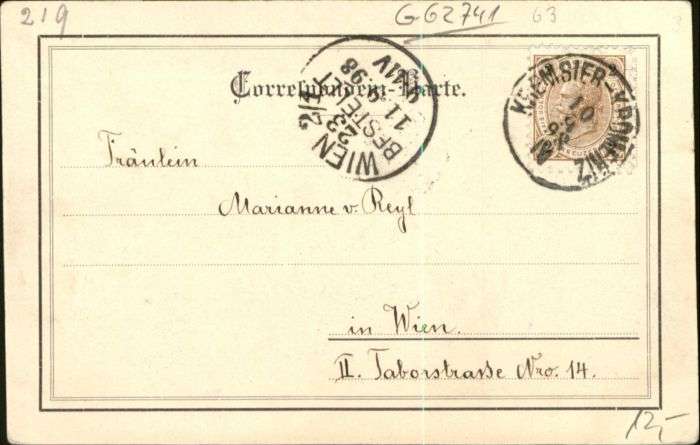 219
G62741 63
Correspondenz-Karte.
WIEN 2/1
BESTELLT
11
98
KREMSIER-KROMĚŘÍŽ
Fräulein
Marianne v. Reyl
in Wien.
II. Taborstrasse Nro. 14.
12,-